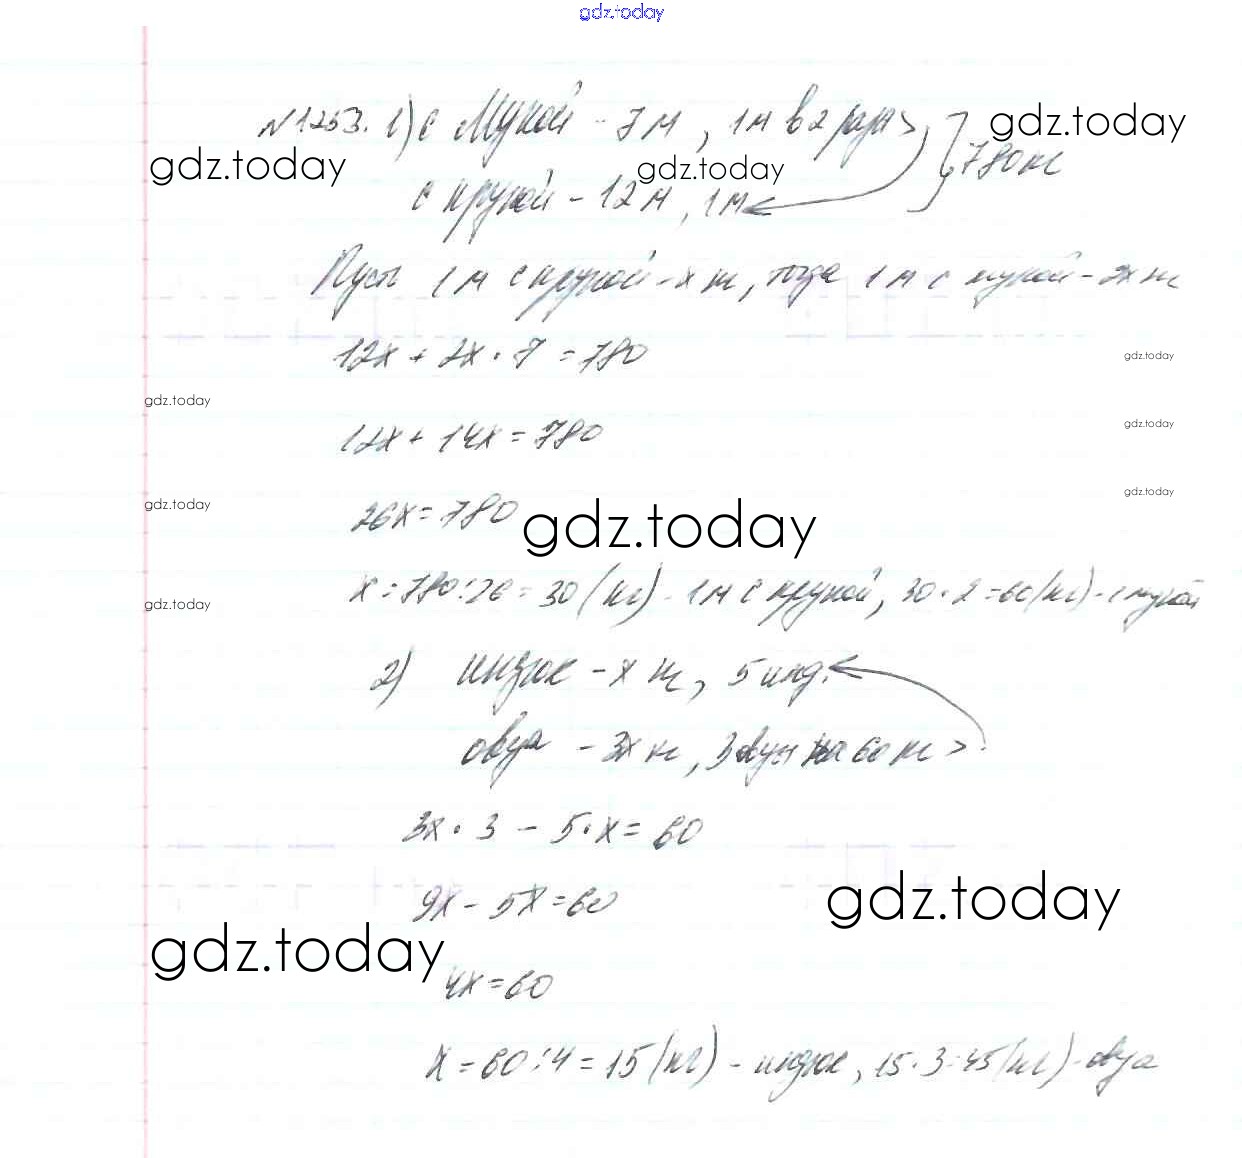 gdz.today
N1253. 1) с мукой - 7 м , 1м в 2 раза > gdz.today
gdz.today gdz.today 780 кг
с крупой - 12 м , 1 м
Пусть 1 м с крупой - x кг, тогда 1 м с мукой - 2x кг
12x + 2x · 7 = 780
gdz.today
gdz.today
12x + 14x = 780
gdz.today
gdz.today
gdz.today
26x = 780
gdz.today
x = 780 : 26 = 30 (кг) - 1 м с крупой, 30 · 2 = 60 (кг) - с мукой
gdz.today
2) индюк - x кг, 5 инд.
овца - 3x кг, 3 овцы на 60 кг >
3x · 3 - 5 · x = 60
9x - 5x = 60
gdz.today
gdz.today
4x = 60
x = 60 : 4 = 15 (кг) - индюк, 15 · 3 = 45 (кг) - овца